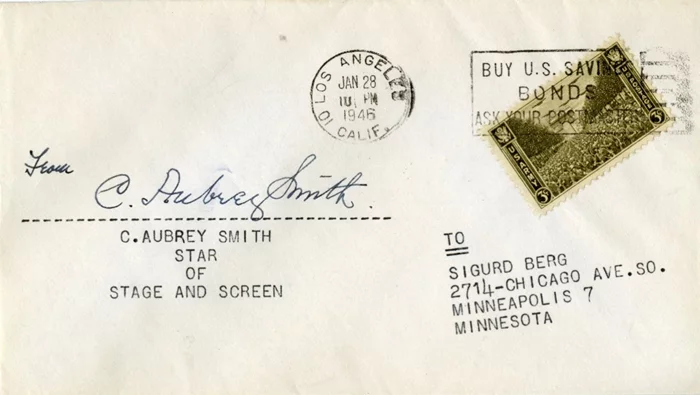 LOS ANGELES
JAN 28
PM
1946
10 CALIF.
BUY U.S. SAVINGS
BONDS
ASK YOUR POSTMASTER
3
3
From
C. Aubrey Smith
C. AUBREY SMITH
STAR
OF
STAGE AND SCREEN
TO
SIGURD BERG
2714-CHICAGO AVE.SO.
MINNEAPOLIS 7
MINNESOTA